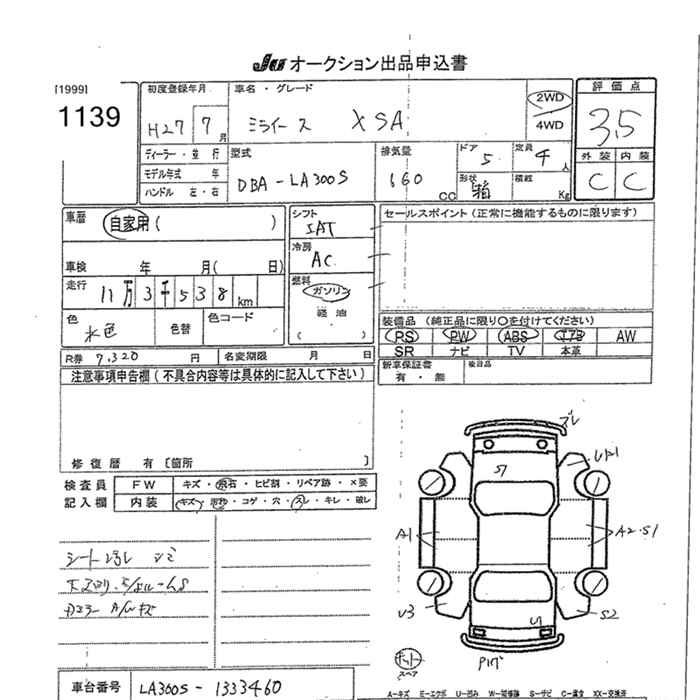 JU オークション出品申込書
[1999]
1139
初度登録年月
H27 7月
車名・グレード
ミライース X SA
2WD
4WD
評価点
3.5
外装 内装
C C
ディーラー・並行
モデル年式 年
ハンドル 左・右
型式
DBA-LA300S
排気量
660 CC
ドア
5
定員
4人
形状
箱
積載
Kg
車歴
自家用 ( )
車検 年 月( 日)
走行
11万3千538km
色
水色
色替
色コード
シフト
IAT
冷房
AC
燃料
ガソリン
軽油
( )
セールスポイント (正常に機能するものに限ります)
装備品 (純正品に限り○を付けてください)
PS PW ABS エアB AW
SR ナビ TV 本革
新車保証書
有・無
後日品
R券 9,320 円
名変期限 月 日
注意事項申告欄 (不具合内容等は具体的に記入して下さい)
修復歴 有 [箇所 ]
検査員
記入欄
FW キズ・飛石・ヒビ割・リペア跡・×要
内装 キズ・汚れ・コゲ・穴・スレ・キレ・破レ
シート汚れ シミ
ズレ
S7
U1
A1
A2.S1
U3
S2
U1
スペア
車台番号 LA300S-1333460
A-キズ E-エクボ U-凹み W-補修跡 S-サビ C-腐食 XX-交換済